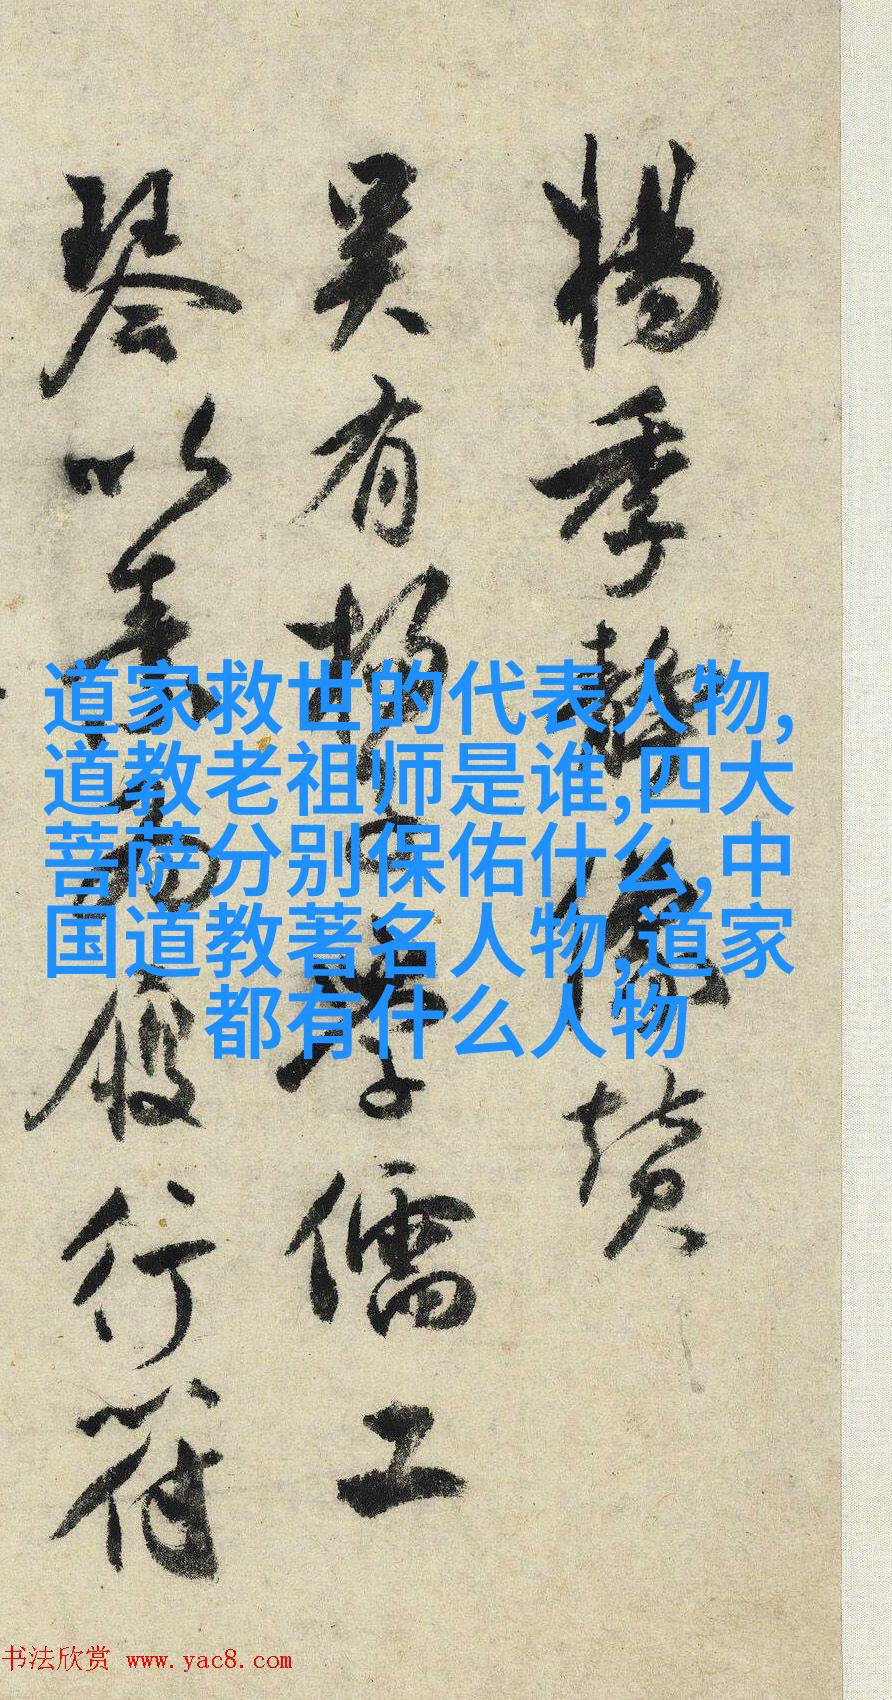 楊季静像赞
吴有杨子学儒工
琴以素為履行符
道家救世的代表人物,
道教老祖师是谁,四大
菩萨分别保佑什么,中
国道教著名人物,道家
都有什么人物
书法欣赏 www.yac8.com